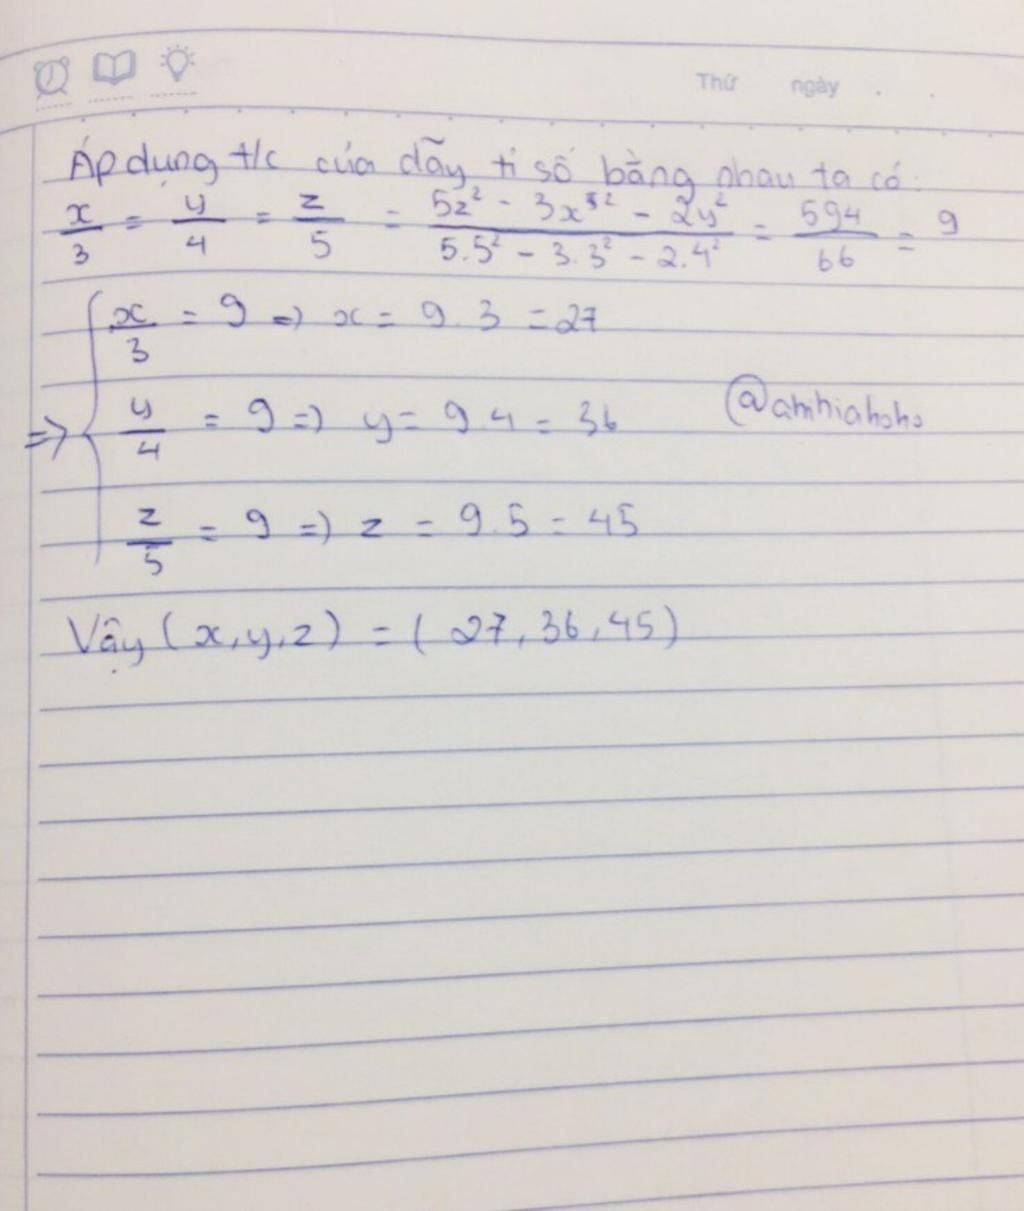 Thứ ngày
Áp dụng t/c của dãy tỉ số bằng nhau ta có
x/3 = y/4 = z/5 = (5z² - 3x² - 2y²)/(5.5² - 3.3² - 2.4²) = 594/66 = 9
=> { x/3 = 9 => x = 9.3 = 27
y/4 = 9 => y = 9.4 = 36
@amhiahoho
z/5 = 9 => z = 9.5 = 45
Vậy (x,y,z) = (27,36,45)